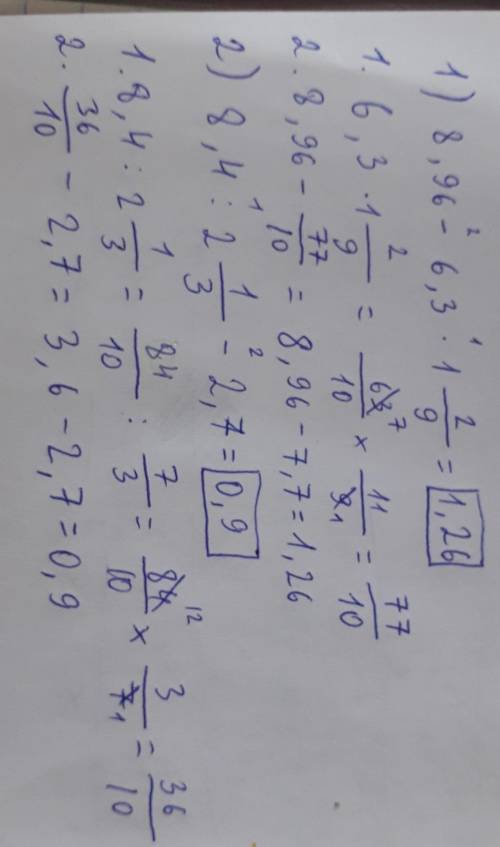 1) 8,96 -² 6,3 ·¹ 1 2/9 = 1,26
1. 6,3 · 1 2/9 = 63 7/10 × 11/9 1 = 77/10
2. 8,96 - 77/10 = 8,96 - 7,7 = 1,26
2) 8,4 :¹ 2 1/3 -² 2,7 = 0,9
1. 8,4 : 2 1/3 = 84/10 : 7/3 = 84 12/10 × 3/7 1 = 36/10
2. 36/10 - 2,7 = 3,6 - 2,7 = 0,9